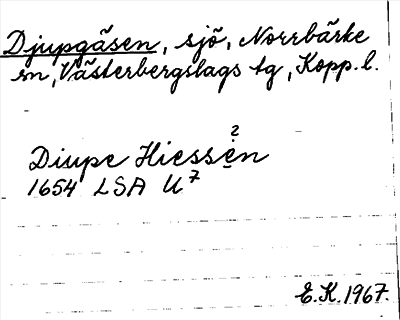 Djupgåsen, sjö, Norrbärke
sn, Västerbergslags tg, Kopp. l.
?
Diupe Hiessen
1654 LSA U7
E.K. 1967.